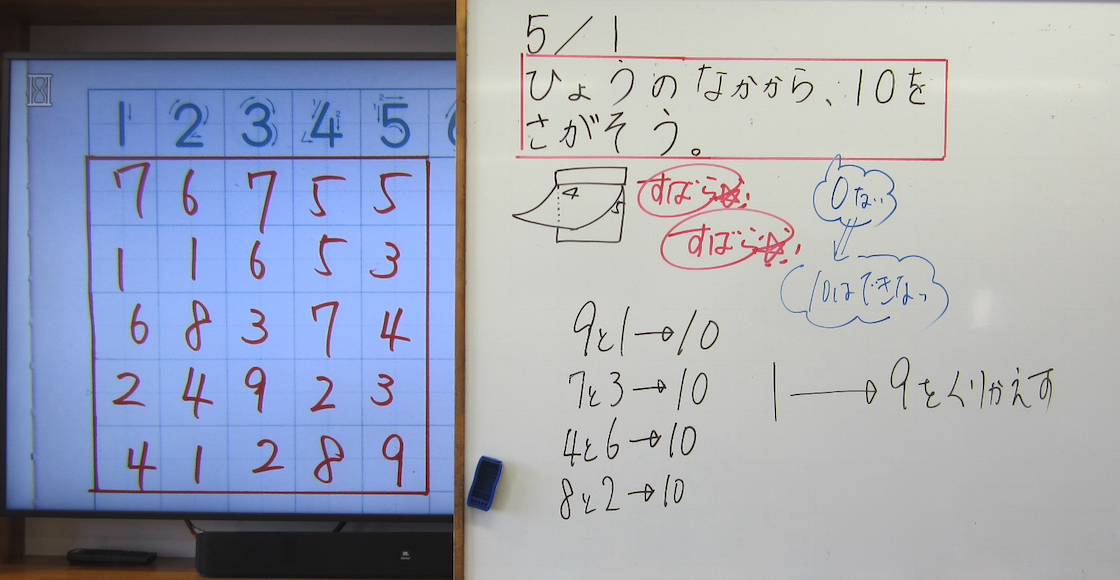 1 2 3 4 5
7 6 7 5 5
1 1 6 5 3
6 8 3 7 4
2 4 9 2 3
4 1 2 8 9
5/1
ひょうのなかから、10を
さがそう。
4 5
0ない
10はできない
9と1→10
7と3→10
4と6→10
8と2→10
1→9をくりかえす